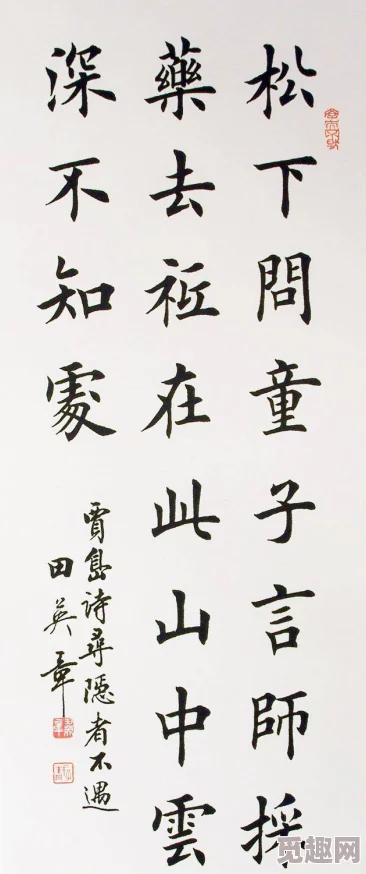 松下問童子言師採
藥去祗在此山中雲
深不知處
賈島詩尋隱者不遇
田英章
觅趣网